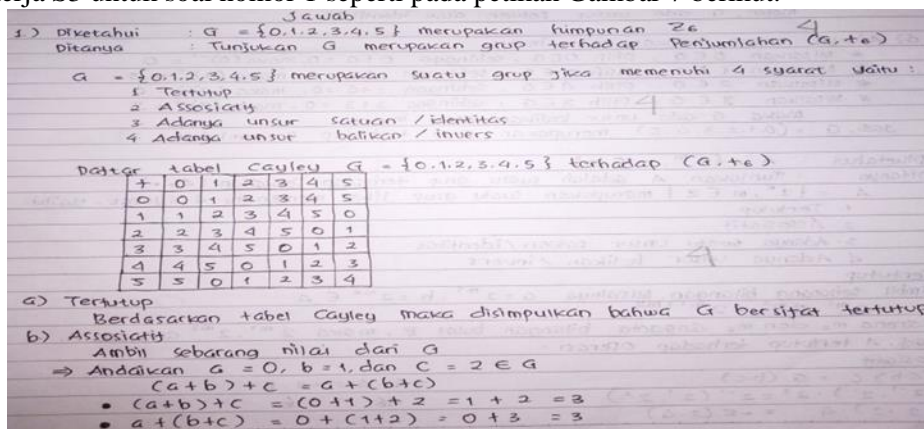 Jawab
1.) Diketahui : G = {0.1.2.3.4.5} merupakan himpunan Z6
Ditanya : Tunjukan G merupakan grup terhadap Penjumlahan (G,+6)
4
G = {0.1.2.3.4.5} merupakan suatu grup jika memenuhi 4 syarat yaitu :
1 Tertutup
2 Assosiatif
3 Adanya unsur satuan / identitas
4 Adanya unsur balikan / invers
4
Daftar tabel Cayley G = {0.1.2.3.4.5} terhadap (G.+6)
+ 0 1 2 3 4 5
0 0 1 2 3 4 5
1 1 2 3 4 5 0
2 2 3 4 5 0 1
3 3 4 5 0 1 2
4 4 5 0 1 2 3
5 5 0 1 2 3 4
4
a) Tertutup
Berdasarkan tabel Cayley maka disimpulkan bahwa G bersifat tertutup
b) Assosiatif
Ambil sebarang nilai dari G
⇒ Andaikan a = 0, b = 1, dan c = 2 ∈ G
(a+b)+c = a+(b+c)
• (a+b)+c = (0+1)+2 = 1+2 = 3
• a+(b+c) = 0+(1+2) = 0+3 = 3